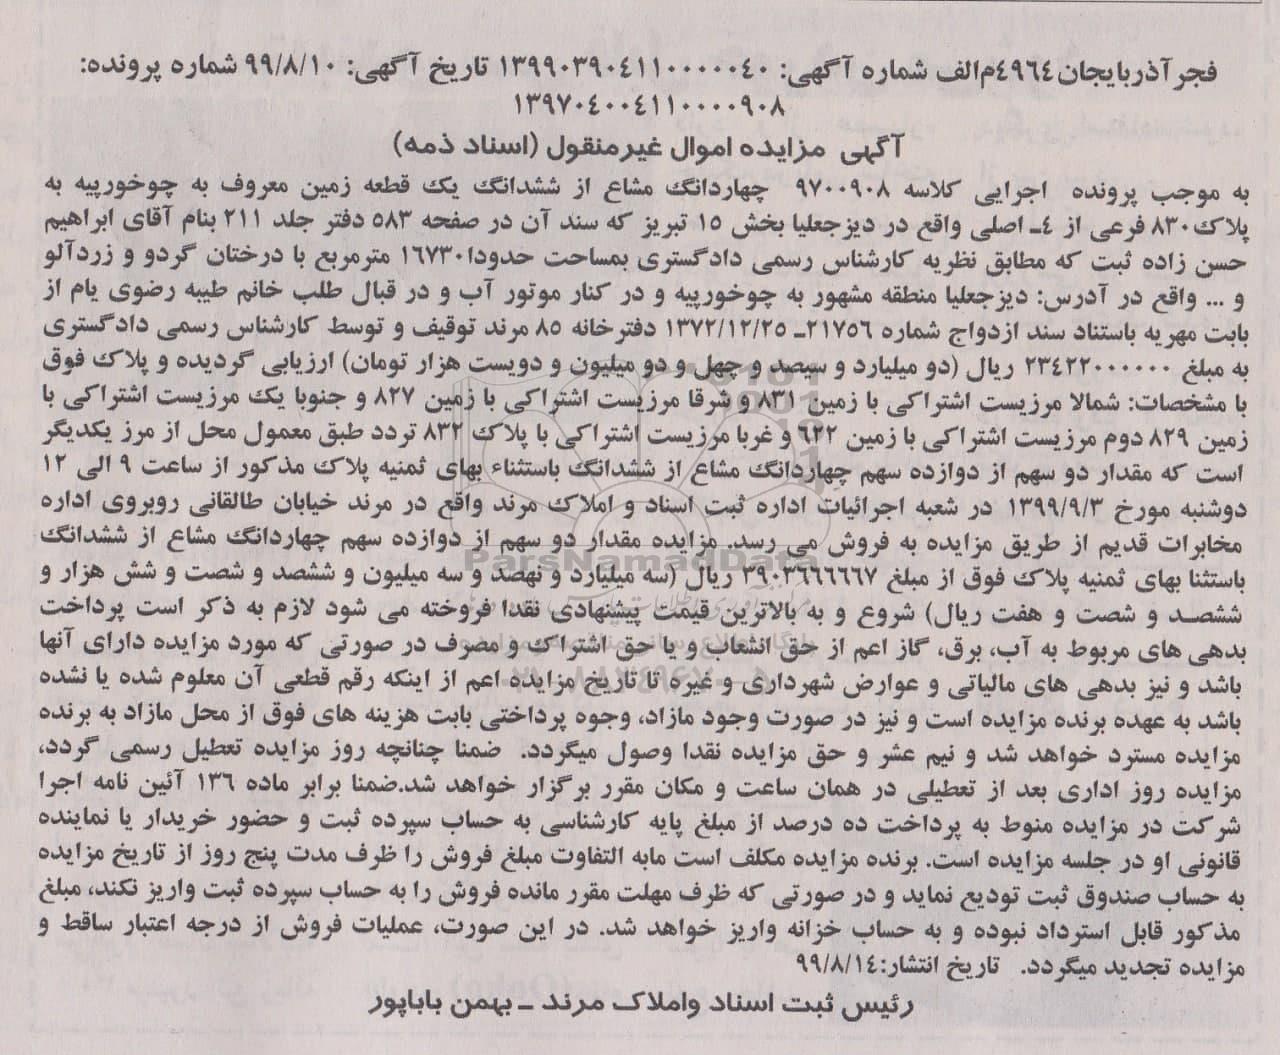 فجر آذربایجان ٤٩٦٤م‌الف شماره آگهی: ١٣٩٩٠٣٩٠٤١١٠٠٠٠٠٤٠ تاریخ آگهی: ٩٩/٨/١٠ شماره پرونده:
١٣٩٧٠٤٠٠٤١١٠٠٠٠٩٠٨
آگهی مزایده اموال غیرمنقول (اسناد ذمه)
به موجب پرونده اجرایی کلاسه ٩٧٠٠٩٠٨ چهاردانگ مشاع از ششدانگ یک قطعه زمین معروف به چوخورپیه به
پلاک ٨٣٠ فرعی از ٤ـ اصلی واقع در دیزجعلیا بخش ١٥ تبریز که سند آن در صفحه ٥٨٣ دفتر جلد ٢١١ بنام آقای ابراهیم
حسن زاده ثبت که مطابق نظریه کارشناس رسمی دادگستری بمساحت حدودا ١٦٧٣٠ مترمربع با درختان گردو و زردآلو
و ... واقع در آدرس: دیزجعلیا منطقه مشهور به چوخورپیه و در کنار موتور آب و در قبال طلب خانم طیبه رضوی یام از
بابت مهریه باستناد سند ازدواج شماره ٢١٧٥٦ـ ١٣٧٢/١٢/٢٥ دفترخانه ٨٥ مرند توقیف و توسط کارشناس رسمی دادگستری
به مبلغ ٢٣٤٢٢٠٠٠٠٠٠ ریال (دو میلیارد و سیصد و چهل و دو میلیون و دویست هزار تومان) ارزیابی گردیده و پلاک فوق
با مشخصات: شمالا مرزیست اشتراکی با زمین ٨٣١ و شرقا مرزیست اشتراکی با زمین ٨٢٧ و جنوبا یک مرزیست اشتراکی با
زمین ٨٢٩ دوم مرزیست اشتراکی با زمین ٦٢٢ و غربا مرزیست اشتراکی با پلاک ٨٣٢ تردد طبق معمول محل از مرز یکدیگر
است که مقدار دو سهم از دوازده سهم چهاردانگ مشاع از ششدانگ باستثناء بهای ثمنیه پلاک مذکور از ساعت ٩ الی ١٢
دوشنبه مورخ ١٣٩٩/٩/٣ در شعبه اجرائیات اداره ثبت اسناد و املاک مرند واقع در مرند خیابان طالقانی روبروی اداره
مخابرات قدیم از طریق مزایده به فروش می رسد. مزایده مقدار دو سهم از دوازده سهم چهاردانگ مشاع از ششدانگ
باستثنا بهای ثمنیه پلاک فوق از مبلغ ٣٩٠٣٦٦٦٦٦٧ ریال (سه میلیارد و نهصد و سه میلیون و ششصد و شصت و شش هزار و
ششصد و شصت و هفت ریال) شروع و به بالاترین قیمت پیشنهادی نقدا فروخته می شود لازم به ذکر است پرداخت
بدهی های مربوط به آب، برق، گاز اعم از حق انشعاب و یا حق اشتراک و مصرف در صورتی که مورد مزایده دارای آنها
باشد و نیز بدهی های مالیاتی و عوارض شهرداری و غیره تا تاریخ مزایده اعم از اینکه رقم قطعی آن معلوم شده یا نشده
باشد به عهده برنده مزایده است و نیز در صورت وجود مازاد، وجوه پرداختی بابت هزینه های فوق از محل مازاد به برنده
مزایده مسترد خواهد شد و نیم عشر و حق مزایده نقدا وصول میگردد. ضمنا چنانچه روز مزایده تعطیل رسمی گردد،
مزایده روز اداری بعد از تعطیلی در همان ساعت و مکان مقرر برگزار خواهد شد.ضمنا برابر ماده ١٣٦ آئین نامه اجرا
شرکت در مزایده منوط به پرداخت ده درصد از مبلغ پایه کارشناسی به حساب سپرده ثبت و حضور خریدار یا نماینده
قانونی او در جلسه مزایده است. برنده مزایده مکلف است مابه التفاوت مبلغ فروش را ظرف مدت پنج روز از تاریخ مزایده
به حساب صندوق ثبت تودیع نماید و در صورتی که ظرف مهلت مقرر مانده فروش را به حساب سپرده ثبت واریز نکند، مبلغ
مذکور قابل استرداد نبوده و به حساب خزانه واریز خواهد شد. در این صورت، عملیات فروش از درجه اعتبار ساقط و
مزایده تجدید میگردد. تاریخ انتشار:٩٩/٨/١٤
رئیس ثبت اسناد واملاک مرند ـ بهمن باباپور
ParsNamadData